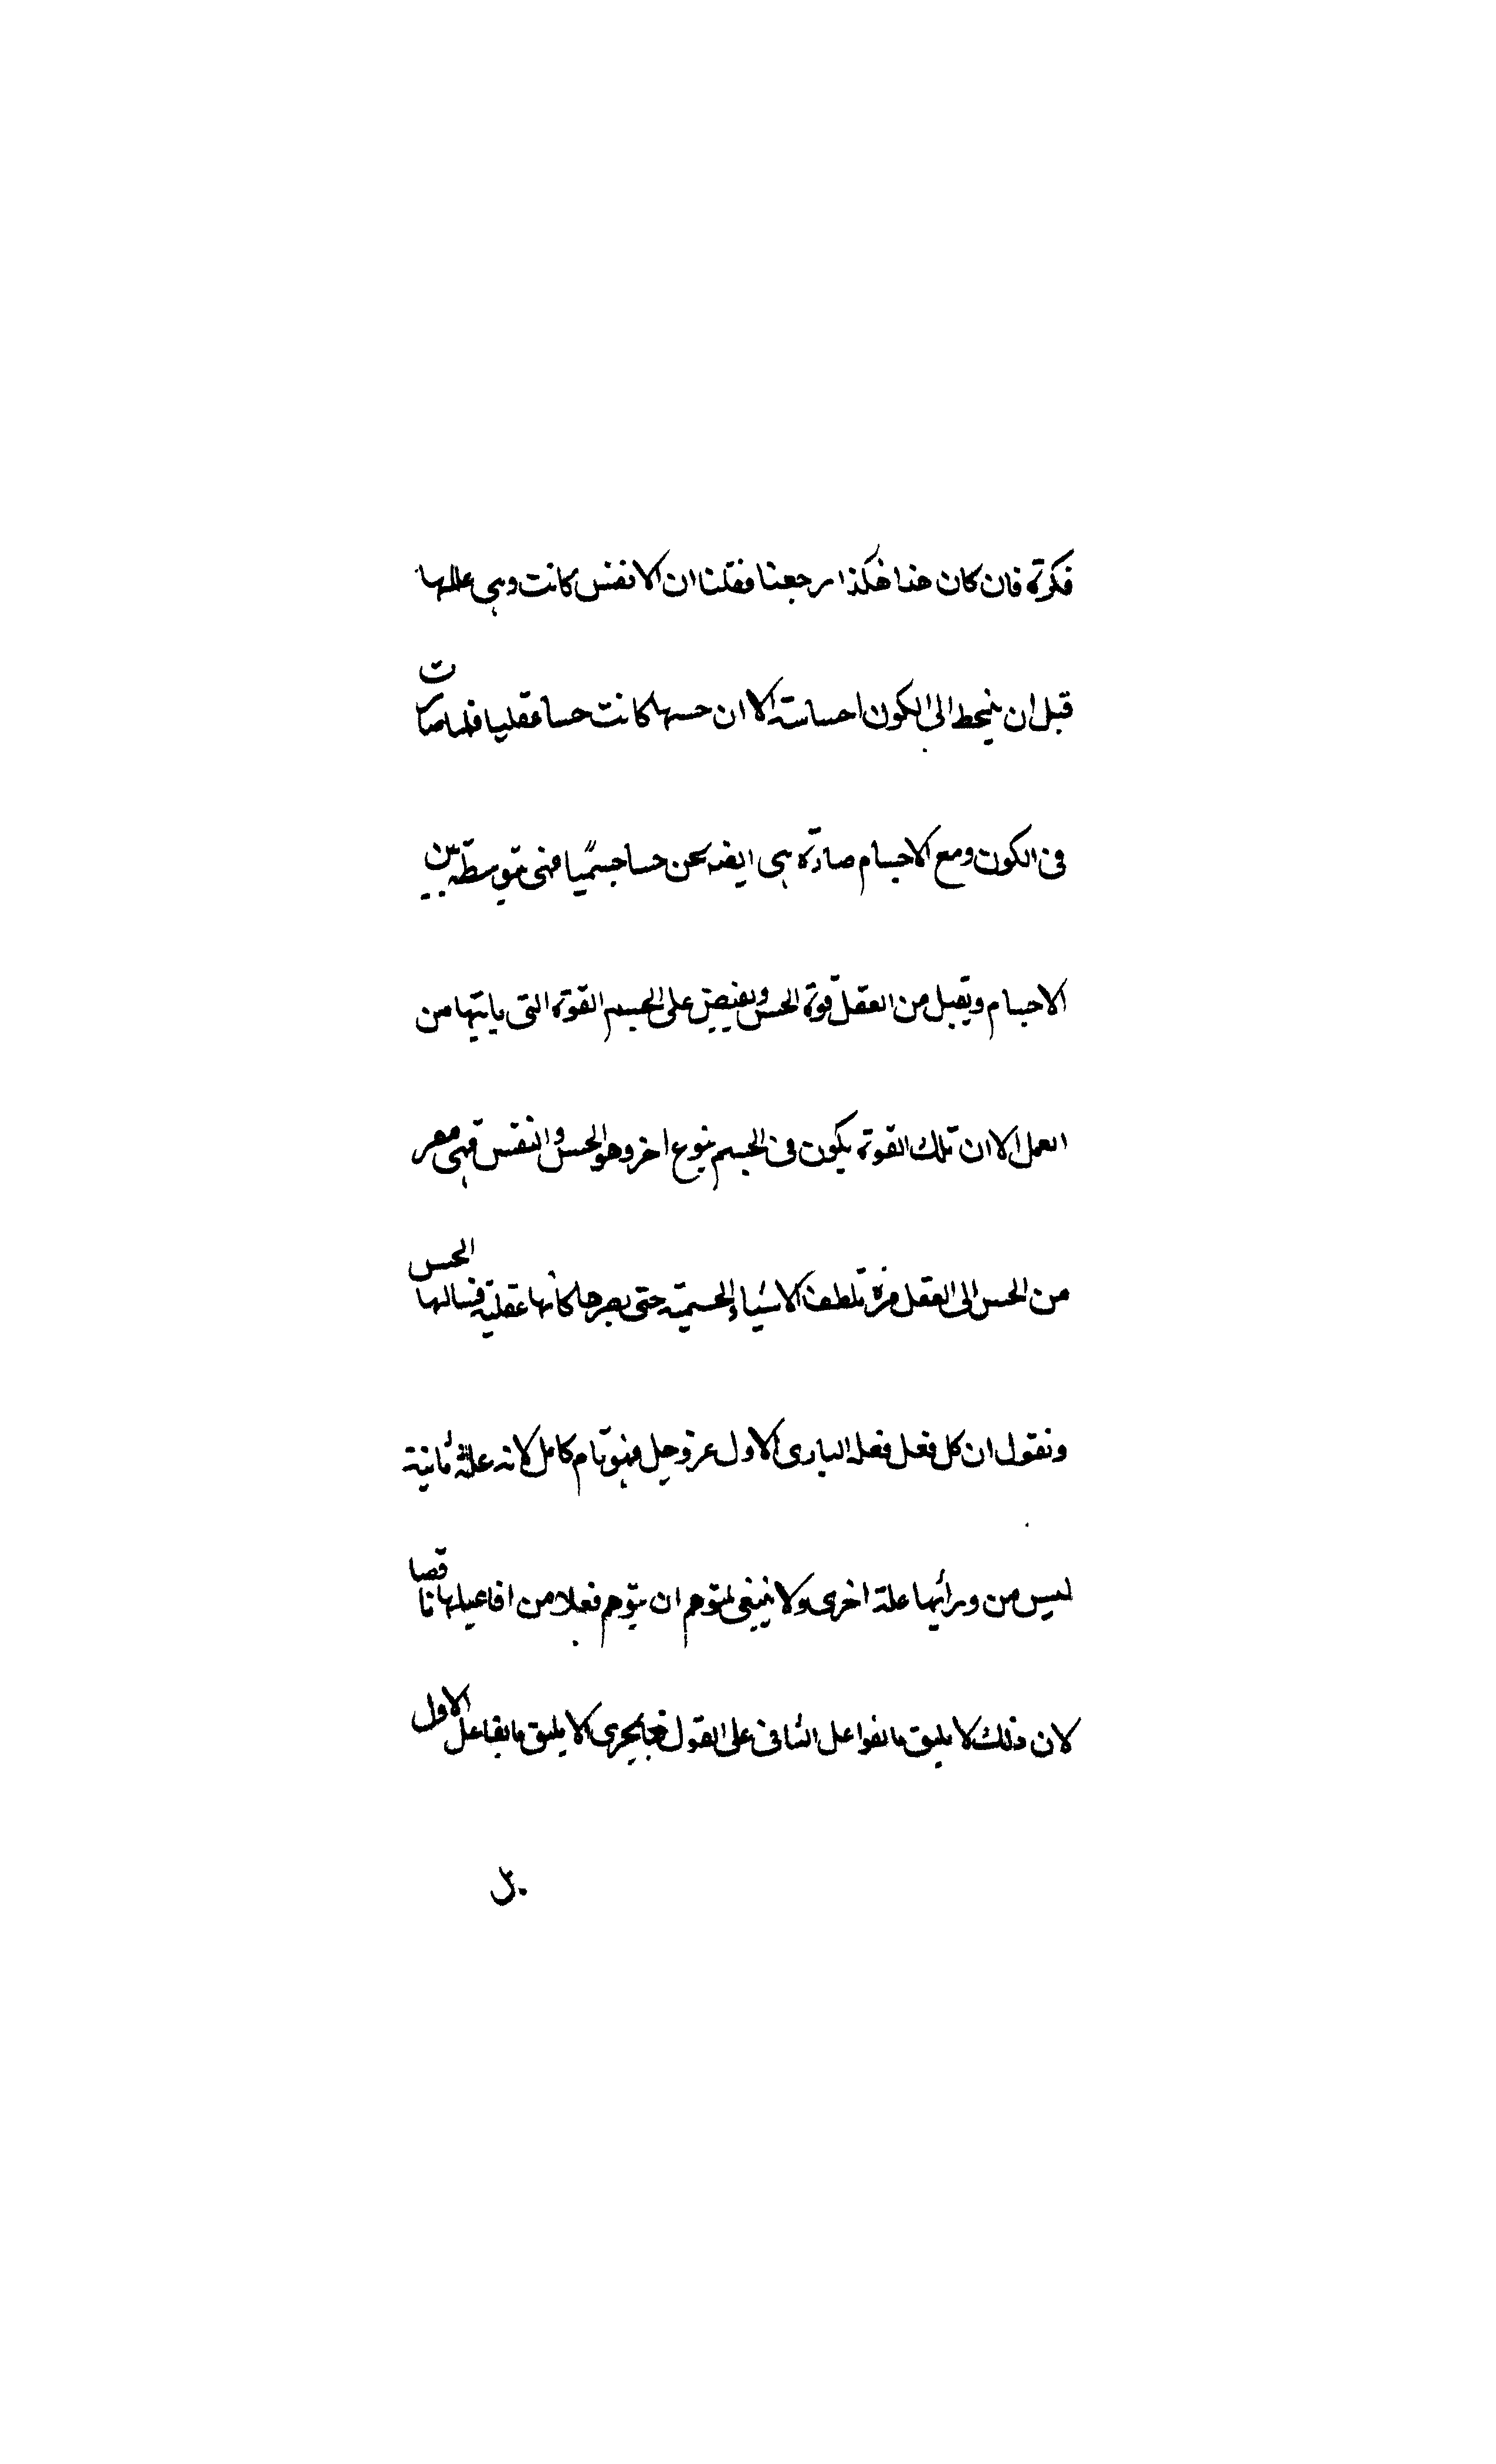 فكرته فان كان هذا هكذا رجعنا فقلنا ان الانفس كانت وهى عالمها
قبل ان ينحط الى الكون احساسته الا ان حسها كانت حسا عقليا فلما صارت
فى الكون ومع الاجسام صارت هى ايضه حسا جسميا فهى متوسطة بين
الاجسام ويقبل من العقل قوة الحس ويفيض على الجسم القوة التى ياتيها من
العمل الا ان تلك القوة يكون فى الجسم بنوع اخر وهو الحس والنفس فهى
من الحس الى العقل مرة تلطف الاشياء الحسية حتى يصيرها كانها عقلية فينالها الحس
ونقول ان كل فعل فعله البارى الاول عز وجل فهو تام كامل لانه علة ثانية
ليس من ورائها علة اخرى ولا ينبغى لمتوهم ان يتوهم فعلا من افاعيلها ناقصا
لان ذلك لا يليق بالفواعل الثانى على القول الا يليق بالفاعل الاول